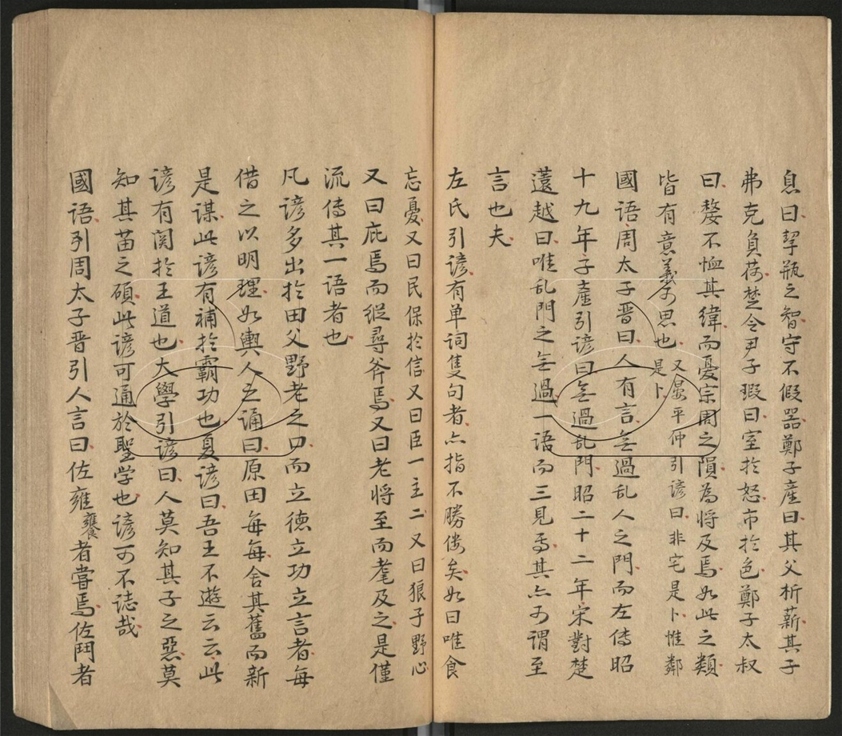 息曰挈瓶之智守不假器鄭子産曰其父析薪其子
弗克負荷楚令尹子瑕曰室於怒市於色鄭子太叔
曰嫠不恤其緯而憂宗周之隕為將及焉如此之類
皆有意義可思也又晏平仲引諺曰非宅是卜惟鄰是卜
國语周太子晋曰人有言無過乱人之門而左传昭
十九年子産引諺曰無過乱門昭二十二年宋對楚
薳越曰唯乱門之無過一语而三見焉其亦可谓至
言也夫
左氏引諺有单词隻句者亦指不勝偻矣如曰唯食
忘憂又曰民保於信又曰臣一主二又曰狼子野心
又曰庇焉而縱尋斧焉又曰老将至而耄及之是僅
流传其一语者也
凡諺多出於田父野老之口而立德立功立言者每
借之以明理如輿人之誦曰原田每每舍其舊而新
是谋此諺有補於霸功也夏諺曰吾王不遊云云此
諺有関於王道也大學引諺曰人莫知其子之惡莫
知其苗之碩此諺可通於聖学也諺可不誌哉
國语引周太子晋引人言曰佐雍饔者嘗焉佐鬥者